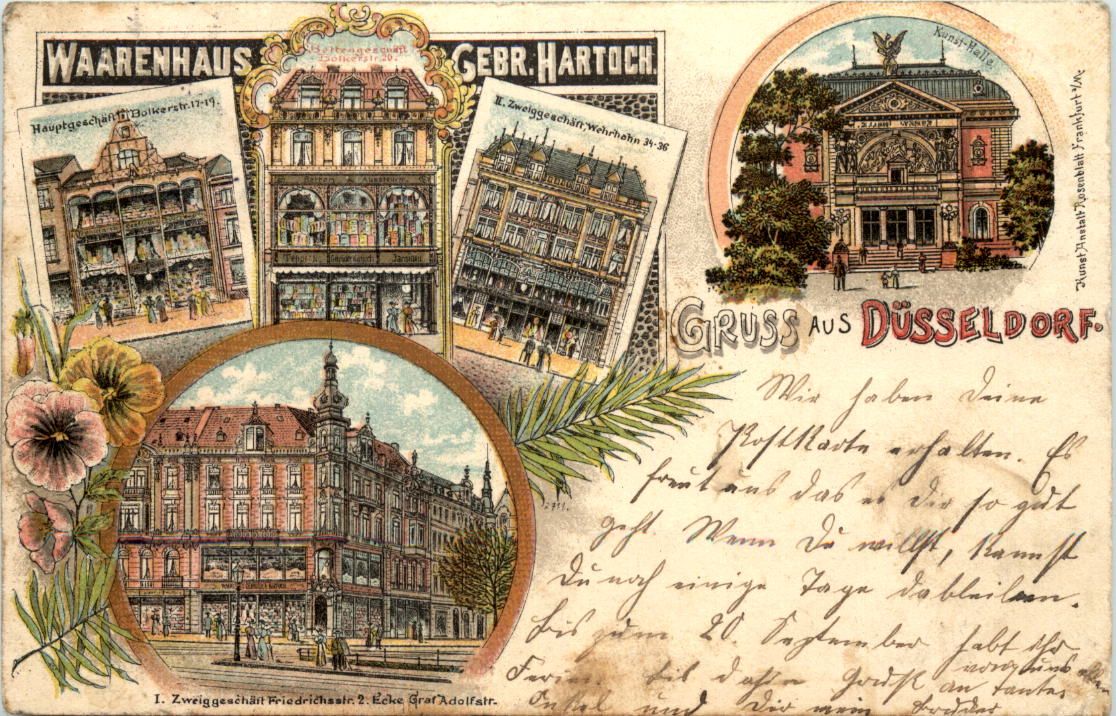 WAARENHAUS GEBR. HARTOCH.
Bettengeschäft
Bolkerstr. 20.
Hauptgeschäft: Bolkerstr. 17-19.
II. Zweiggeschäft, Wehrhahn 34-36
Kunst-Halle.
Kunst Anstalt Rosenblatt Frankfurt a/M.
GRUSS AUS DÜSSELDORF.
I. Zweiggeschäft Friedrichsstr. 2. Ecke Graf Adolfstr.
Wir haben Deine
Postkarte erhalten. Es
freut uns das es Dir so gut
geht. Wenn Du willst, kannst
Du noch einige Tage dableiben.
Bis zum 20. September habt ihr
Ferien bis dahin Gruß an Tante
Onkel und Dir mein Bruder